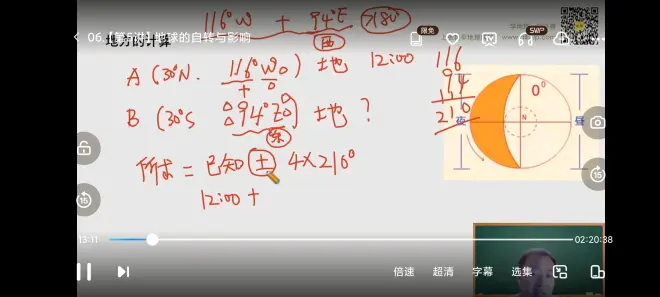 116°W + 94°E >180°
西
06.【第5讲】地球的自转与影响
限免
SWP
地方时计算
A (30°N. 116°W) 土地 12:00
B (30°S 94°E) 土地 ?
东
116
94
210
0°
N
夜
昼
所求 = 已知 ± 4×210°
12:00 +
15
15
13:11
02:20:38
倍速
超清
字幕
选集